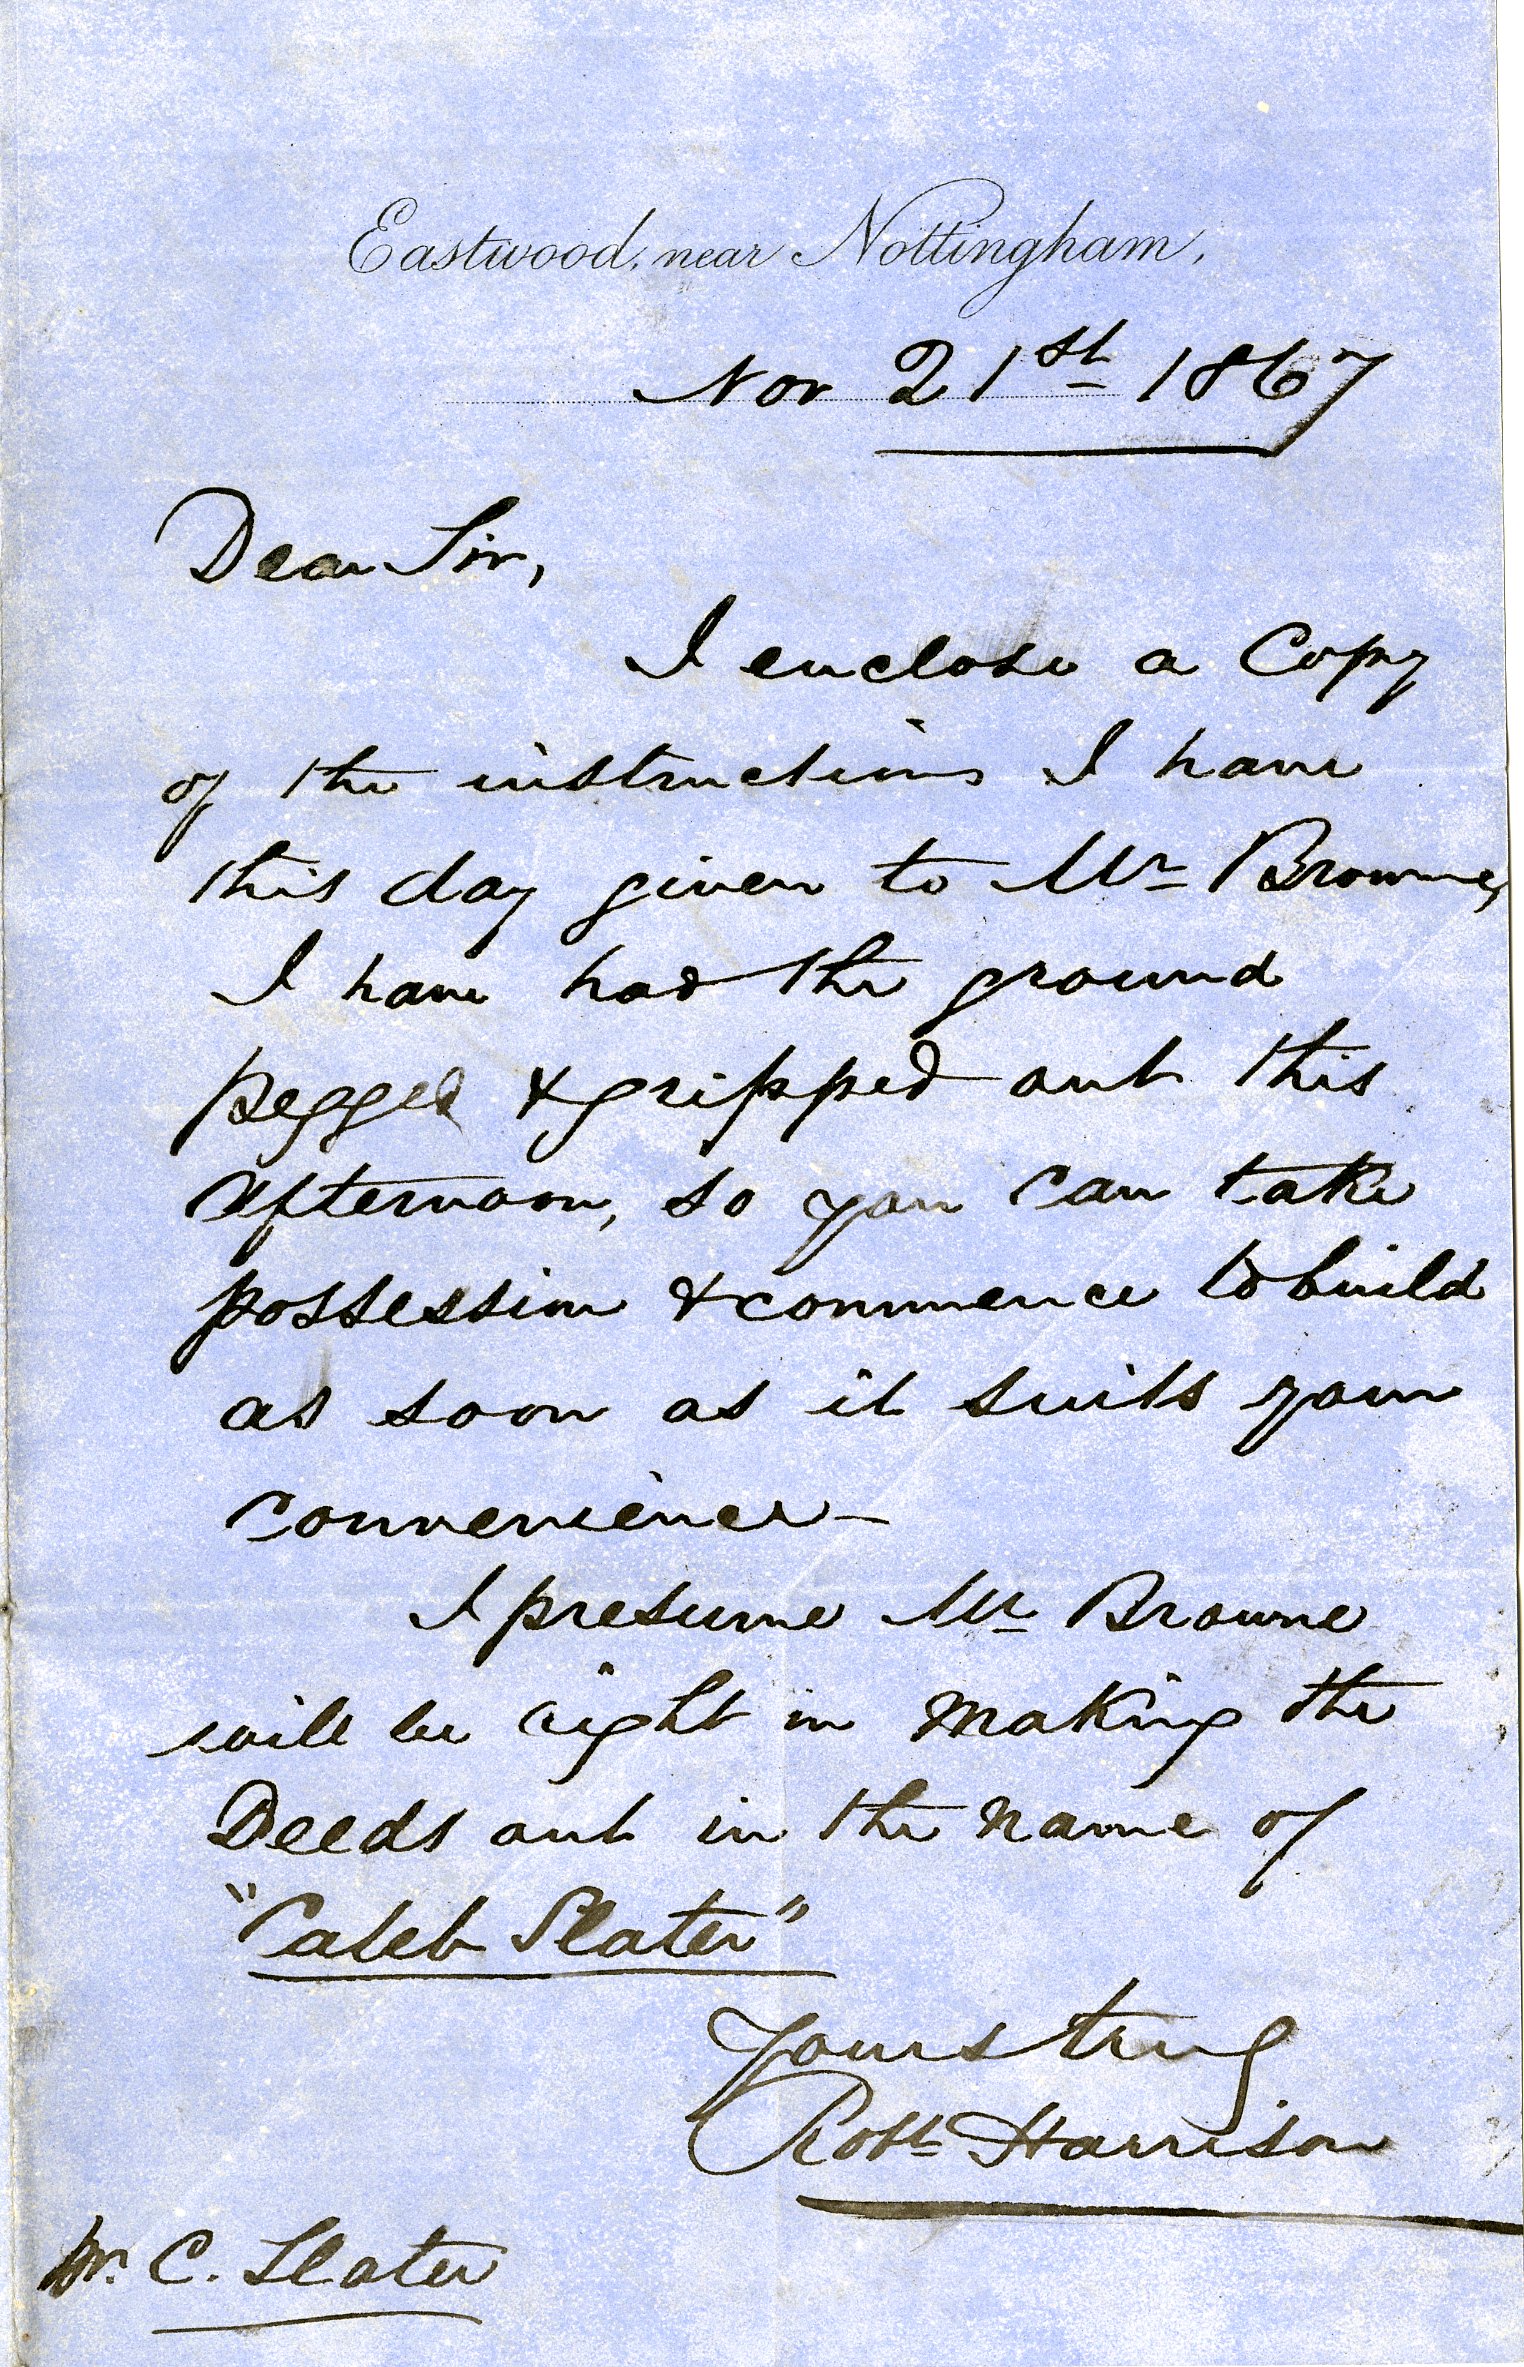 Eastwood, near Nottingham,
Nov 21st 1867
Dear Sir,
I enclose a Copy
of the instructions I have
this day given to Mr Browne,
I have had the ground
pegged & gripped out this
afternoon, so you can take
possession & commence to build
as soon as it suits your
convenience -
I presume Mr Browne
will be right in making the
Deeds out in the name of
"Caleb Slater"
Yours truly
Robt Harrison
Mr. C. Slater